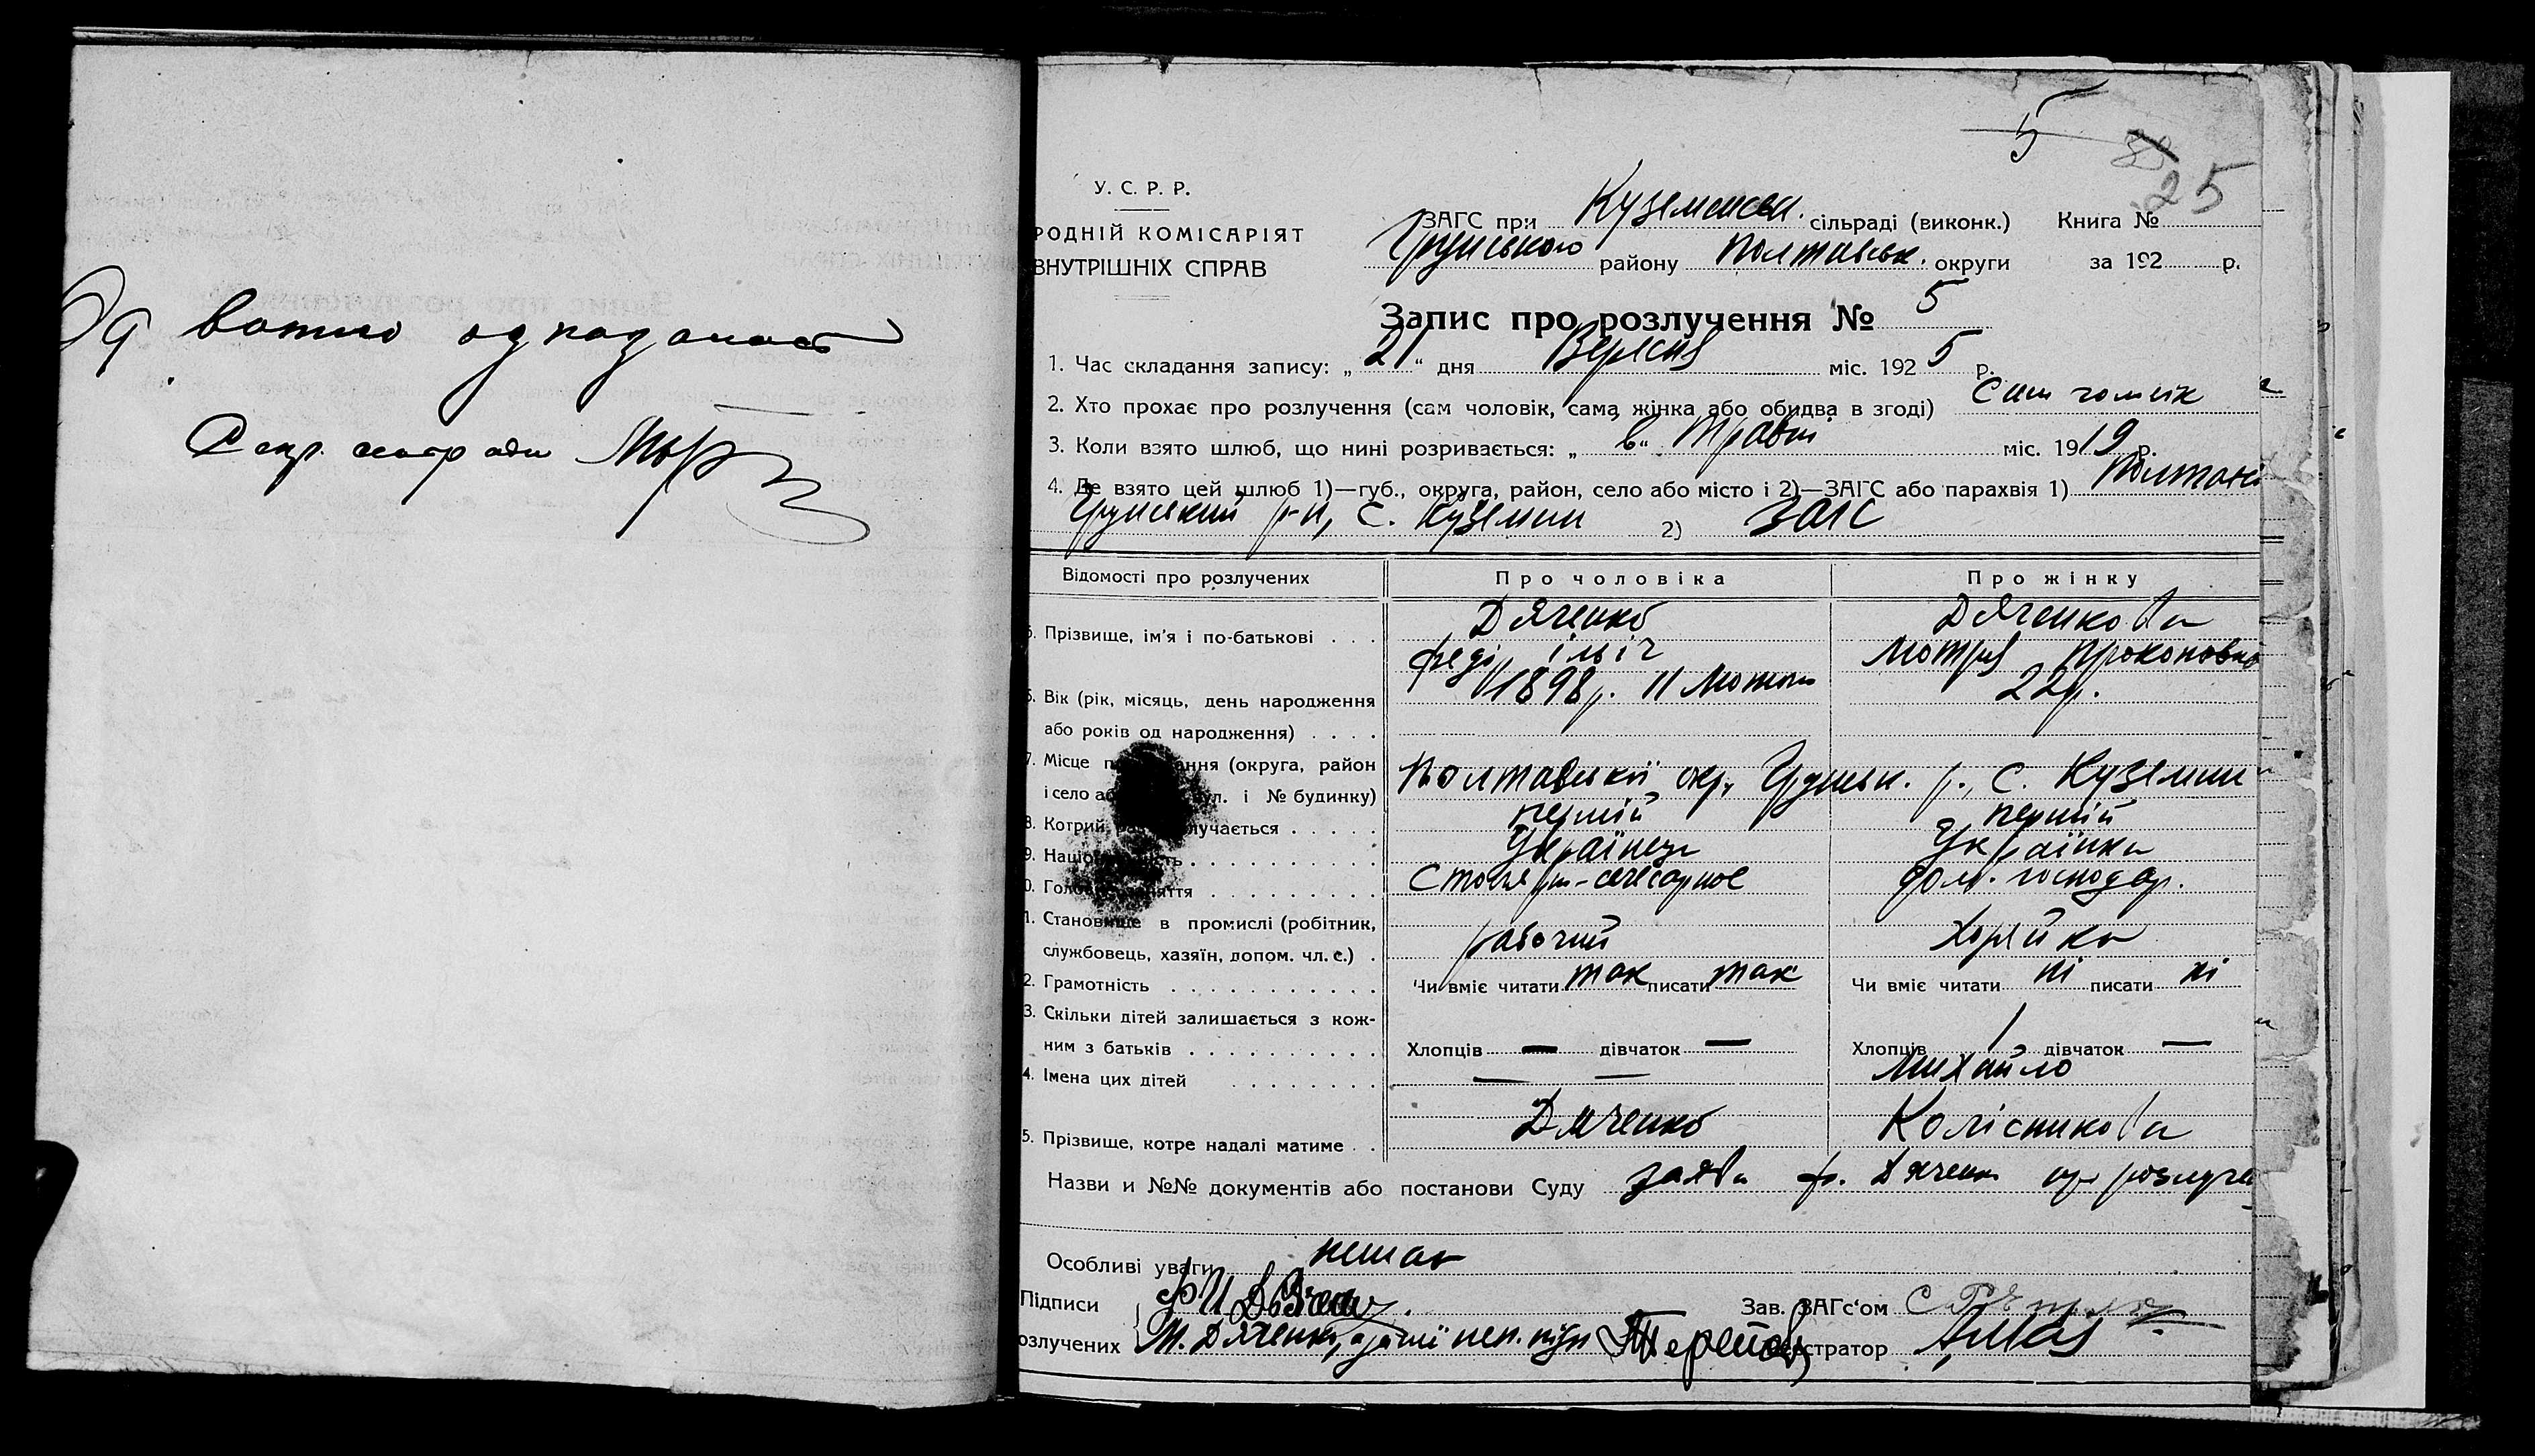 Секр. сельради
5
25
У. С. Р. Р.
РОДНІЙ КОМІСАРІЯТ
ВНУТРІШНІХ СПРАВ
ЗАГС при Куземинськ. сільраді (виконк.) Книга №
Грунського району Полтавськ. округи за 192 р.
Запис про розлучення № 5
1. Час складання запису: „ 21 “ дня Вересня міс. 192 5 р.
2. Хто прохає про розлучення (сам чоловік, сама жінка або обидва в згоді) Сам чоловік
3. Коли взято шлюб, що нині розривається: „ в “ Травні міс. 19 19 р.
4. Де взято цей шлюб 1)—губ., округа, район, село або місто і 2)—ЗАГС або парахвія 1) Полтавсь
Грунський р-н, с. Куземин 2) ЗАГС
Відомості про розлучених Про чоловіка Про жінку
5. Прізвище, ім'я і по-батькові . . . Дяченко Дяченкова
Федір Ільіч Мотря Прокоповна
6. Вік (рік, місяць, день народження 1898 р. 11 Лютого 22 р.
або років од народження) . . . .
7. Місце ння (округа, район
і село аб ул. і № будинку) Полтавської окр., Грунськ. р., с. Куземин
8. Котрий лучається . . . . . перший перший
9. Націо сть . . . . . . . . . . Українець Українка
0. Голов няття . . . . . . . . . Столярно-слесарное дом. господар.
1. Становище в промислі (робітник,
службовець, хазяїн, допом. чл. с.) . рабочий Хозяйка
2. Грамотність . . . . . . . . . . . Чи вміє читати так писати так Чи вміє читати ні писати ні
3. Скільки дітей залишається з кож-
ним з батьків . . . . . . . . . . Хлопців — дівчаток — Хлопців 1 дівчаток —
4. Імена цих дітей . . . . . . . . — — Михайло
5. Прізвище, котре надалі матиме . . Дяченко Колісникова
Назви и №№ документів або постанови Суду заява ф. Дяченк про розлуче
Особливі уваги немає
Підписи Ф И Дяченко. Зав. ЗАГс'ом
озлучених М. Дяченко, а за неї неп. підп. Терещенко еєстратор